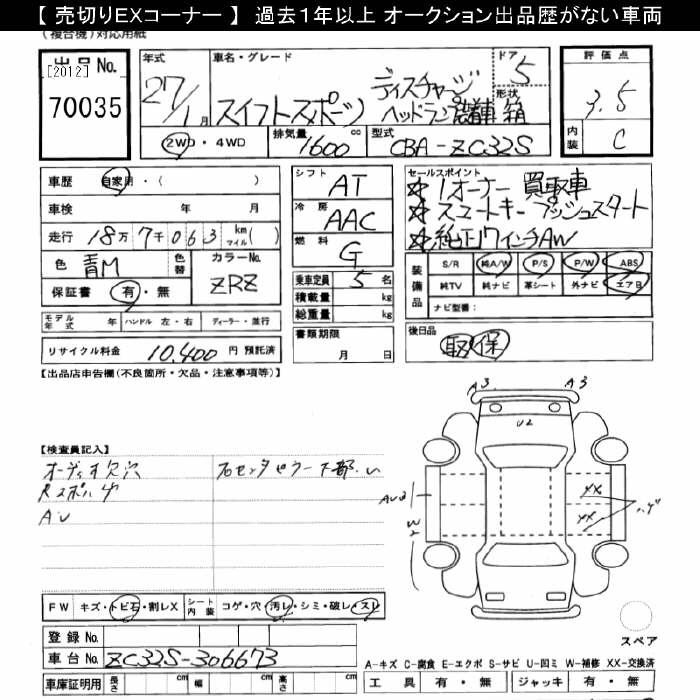 【 売切りEXコーナー 】 過去1年以上 オークション出品歴がない車両
(複合機)対応用紙
出品No.
[2012]
70035
年式
27/1月
車名・グレード
スイフトスポーツ
ディスチャージ
ヘッドランプ装着車
ドア
5
形状
箱
評価点
3.5
内装
C
2WD・4WD
排気量
1600 cc
型式
CBA-ZC32S
車歴 自家用・( )
車検 年 月
走行 18万7千063 km マイル( )
色 青M
色替
カラーNo.
ZRZ
保証書 有・無
シフト AT
冷房 AAC
燃料 G
乗車定員 5 名
積載量 kg
総重量 kg
書類期限
月 日
セールスポイント
☆1オーナー 買取車
☆スマートキー プッシュスタート
☆純正17インチAW
装備品
S/R 純A/W P/S P/W ABS
純TV 純ナビ 革シート 外ナビ エアB
ナビ型番:
モデル年式 年 ハンドル 左・右 ディーラー・並行
リサイクル料金 10,400 円 預託済
後日品
取 保
【出品店申告欄(不良箇所・欠品・注意事項等)】
【検査員記入】
オーディオ欠穴
Rスポハゲ
AU
右センタピラー下部
A3
A3
U2
AU3
W2
XX
XX
ハゲ
FW キズ・トビ石・割レX
シート内装 コゲ・穴・汚レ・シミ・破レ・スレ
登録No.
車台No. ZC32S-306673
車庫証明用 長さ cm 幅 cm 高さ cm
スペア
A-キズ C-腐食 E-エクボ S-サビ U-凹ミ W-補修 XX-交換済
工具 有・無 ジャッキ 有・無